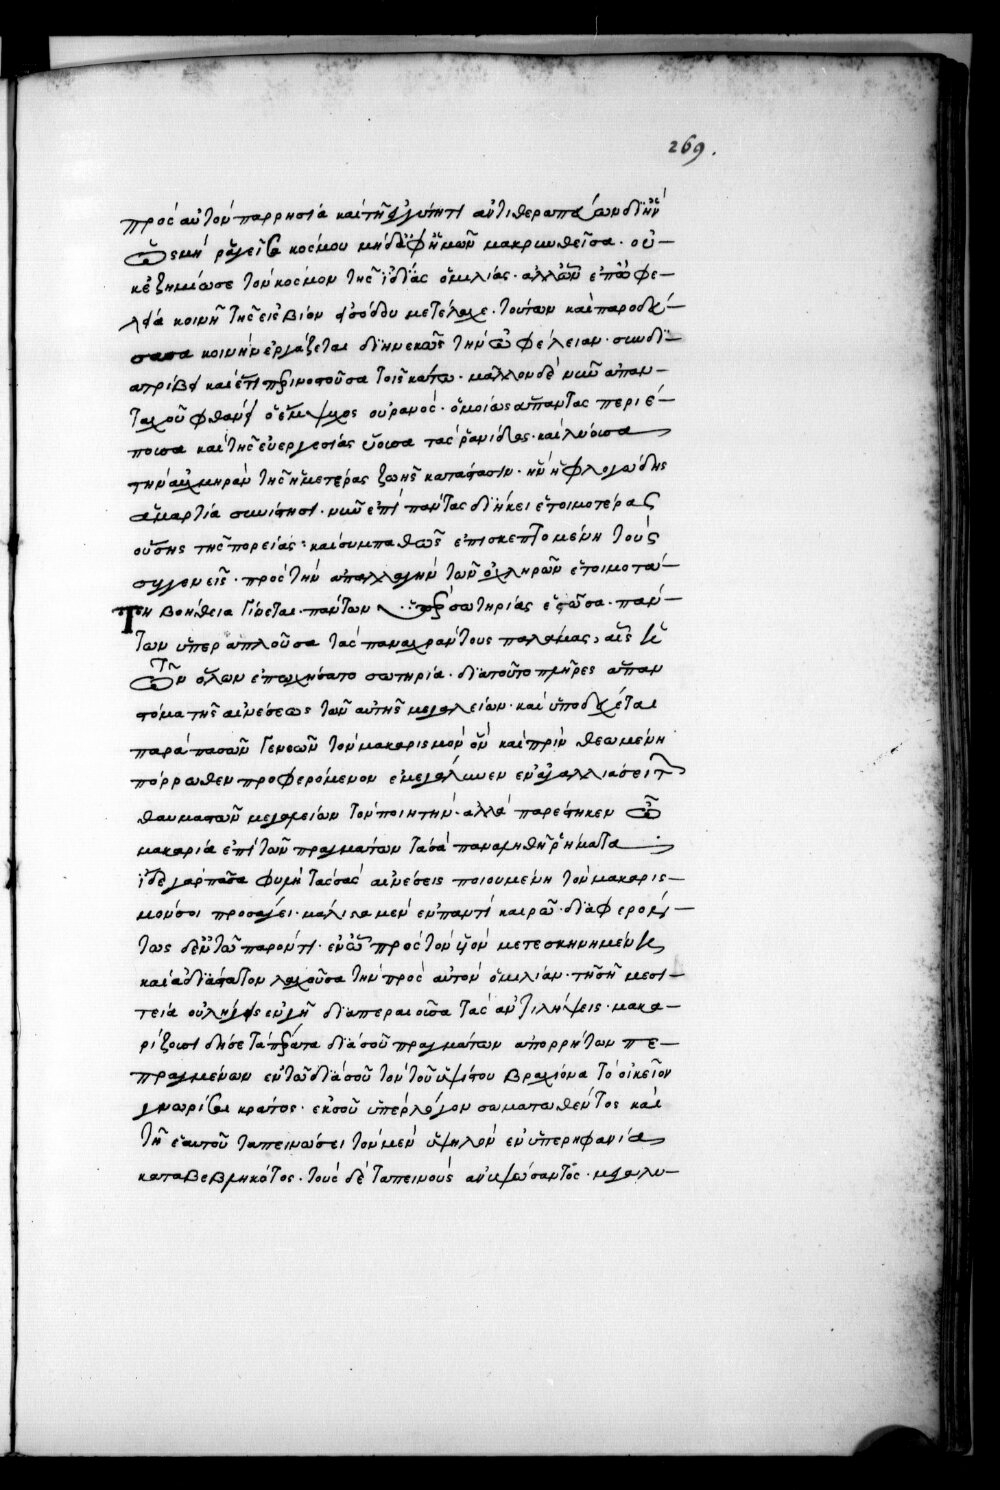 269.
πρὸς αὐτὸν παρρησία καὶ τῇ ἐγγύτητι ἀντιθεραπεύων δι' ἣν
μὴ ῥαγεῖσα κόσμου μηδ' ἀφ' ἡμῶν μακρυνθεῖσα· οὐ-
κ ἐζημίωσε τὸν κόσμον τῆς ἰδίας ὁμιλίας· ἀλλ' ἐπωφε-
κοινῆ τῆς εἰς βίον εἰσόδου μετέλαχε· τούτων καὶ παροδεύ-
σασα κοινὴν ἐργάζεται διηνεκῶς τὴν ὠφέλειαν· συνδι-
ατρίβει καὶ ἔτι τοῖς κάτω· μᾶλλον δὲ νῦν ἁπαν-
ταχοῦ φθάνει ὁ ἔμψυχος οὐρανός· ὁμοίως ἅπαντας περιέ-
πουσα καὶ τῆς εὐεργεσίας ὕουσα τὰς ῥανίδας· καὶ λύουσα
τὴν αὐχμηρὰν τῆς ἡμετέρας ζωῆς κατάστασιν· ἣν ἡ φλογώδης
ἁμαρτία συνίστησι· νῦν ἐπὶ πάντας διήκει ἑτοιμοτέρας
οὔσης τῆς πορείας· καὶ συμπαθῶς ἐπισκεπτομένη τοὺς
συγγενεῖς· πρὸς τὴν ἀπαλλαγὴν τῶν ὀχληρῶν ἑτοιμοτά-
τη βοήθεια γίνεται· πάντων σωτηρίας ἐρῶσα· πάν-
των ὑπεραπλοῦσα τὰς παναχράντους παλάμας, αἷς
τῶν ὅλων ἐπωχήσατο σωτηρία· διατοῦτο πλῆρες ἅπαν
στόμα τῆς αἰνέσεως τῶν αὐτῆς μεγαλείων· καὶ ὑποδέχεται
παρὰ πασῶν γενεῶν τὸν μακαρισμὸν ὃν καὶ πρὶν θεωμένη
πόρρωθεν προφερόμενον ἐμεγάλυνεν ἐν ἀγαλλιάσει τ
θαυμαστῶν μεγαλείων τὸν ποιητήν· ἀλλὰ παρέστηκεν ὦ
μακαρία ἐπὶ τῶν πραγμάτων τὰ σὰ παναληθῆ ῥήματα
ἰδὲ γὰρ πᾶσα φυλὴ τὰς σὰς αἰνέσεις ποιουμένη τὸν μακαρισ-
μόν σοι προσάγει· μάλιστα μὲν ἐν παντὶ καιρῶ· διαφερόν-
τως δ' ἐν τῶ παρόντι· ἐν ὧ πρὸς τὸν υἱὸν μετεσκηνημένη
καὶ ἀδιάστατον λαχοῦσα τὴν πρὸς αὐτὸν ὁμιλίαν· τῆ σῆ μεσι-
τεία διαπεραιοῦσα τὰς ἀντιλήψεις· μακα-
ρίζουσι δή σε τὰ διὰ σοῦ πραγμάτων ἀπορρήτων πε-
πραγμένων ἐν τῶ διὰ σοῦ τὸν τοῦ ὑψίστου βραχίονα τὸ οἰκεῖον
γνωρίσαι κράτος· ἐκ σοῦ ὑπὲρ λόγον σωματωθέντος καὶ
τῆ ἑαυτοῦ ταπεινώσει τὸν μὲν ὑψηλὸν ἐν ὑπερηφανία
καταβεβληκότος· τοὺς δὲ ταπεινοὺς ἀνυψώσαντος· μεγαλυ-